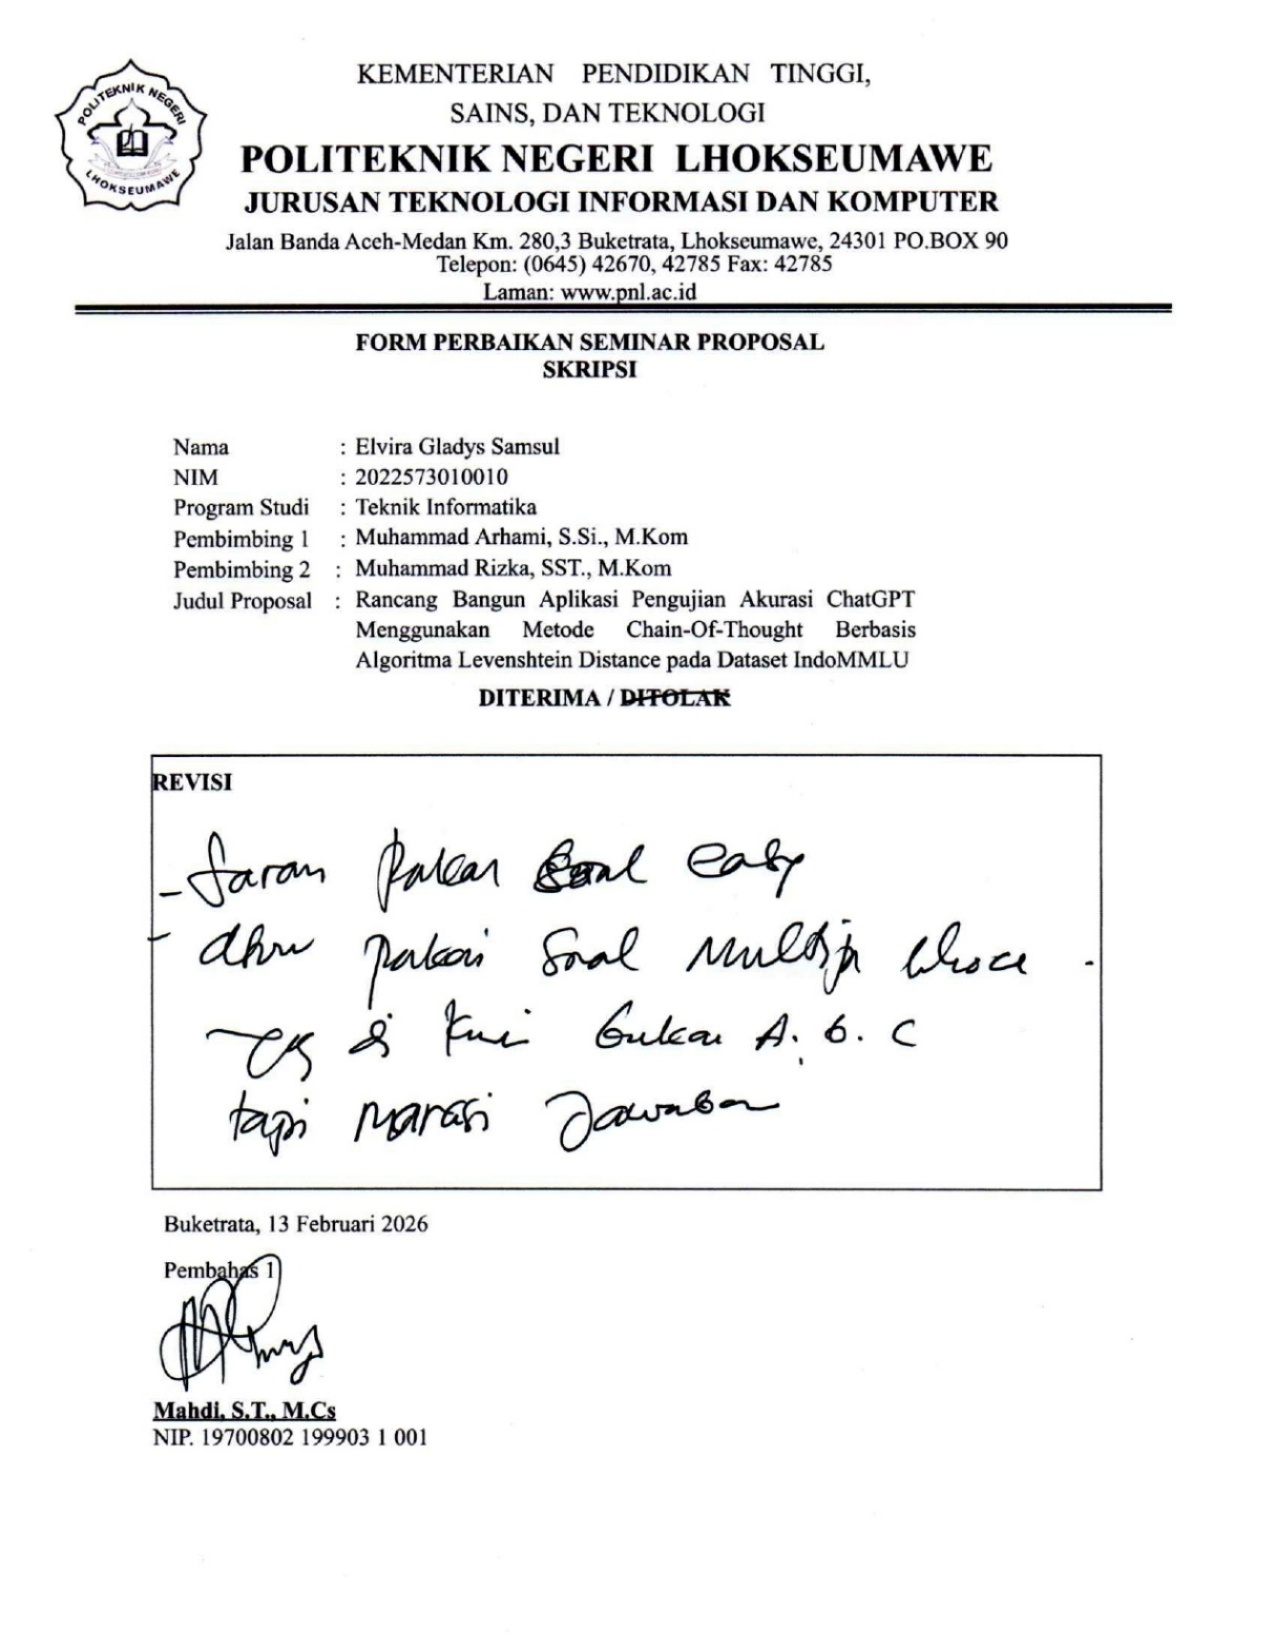 POLITEKNIK NEGERI
LHOKSEUMAWE
KEMENTERIAN PENDIDIKAN TINGGI,
SAINS, DAN TEKNOLOGI
POLITEKNIK NEGERI LHOKSEUMAWE
JURUSAN TEKNOLOGI INFORMASI DAN KOMPUTER
Jalan Banda Aceh-Medan Km. 280,3 Buketrata, Lhokseumawe, 24301 PO.BOX 90
Telepon: (0645) 42670, 42785 Fax: 42785
Laman: www.pnl.ac.id
FORM PERBAIKAN SEMINAR PROPOSAL
SKRIPSI
Nama : Elvira Gladys Samsul
NIM : 2022573010010
Program Studi : Teknik Informatika
Pembimbing 1 : Muhammad Arhami, S.Si., M.Kom
Pembimbing 2 : Muhammad Rizka, SST., M.Kom
Judul Proposal : Rancang Bangun Aplikasi Pengujian Akurasi ChatGPT
Menggunakan Metode Chain-Of-Thought Berbasis
Algoritma Levenshtein Distance pada Dataset IndoMMLU
DITERIMA / DITOLAK
REVISI
- Saran pakai soal
- pakai soal
di bukan A. B. C
tapi narasi Jawaban
Buketrata, 13 Februari 2026
Pembahas 1
Mahdi, S.T., M.Cs
NIP. 19700802 199903 1 001